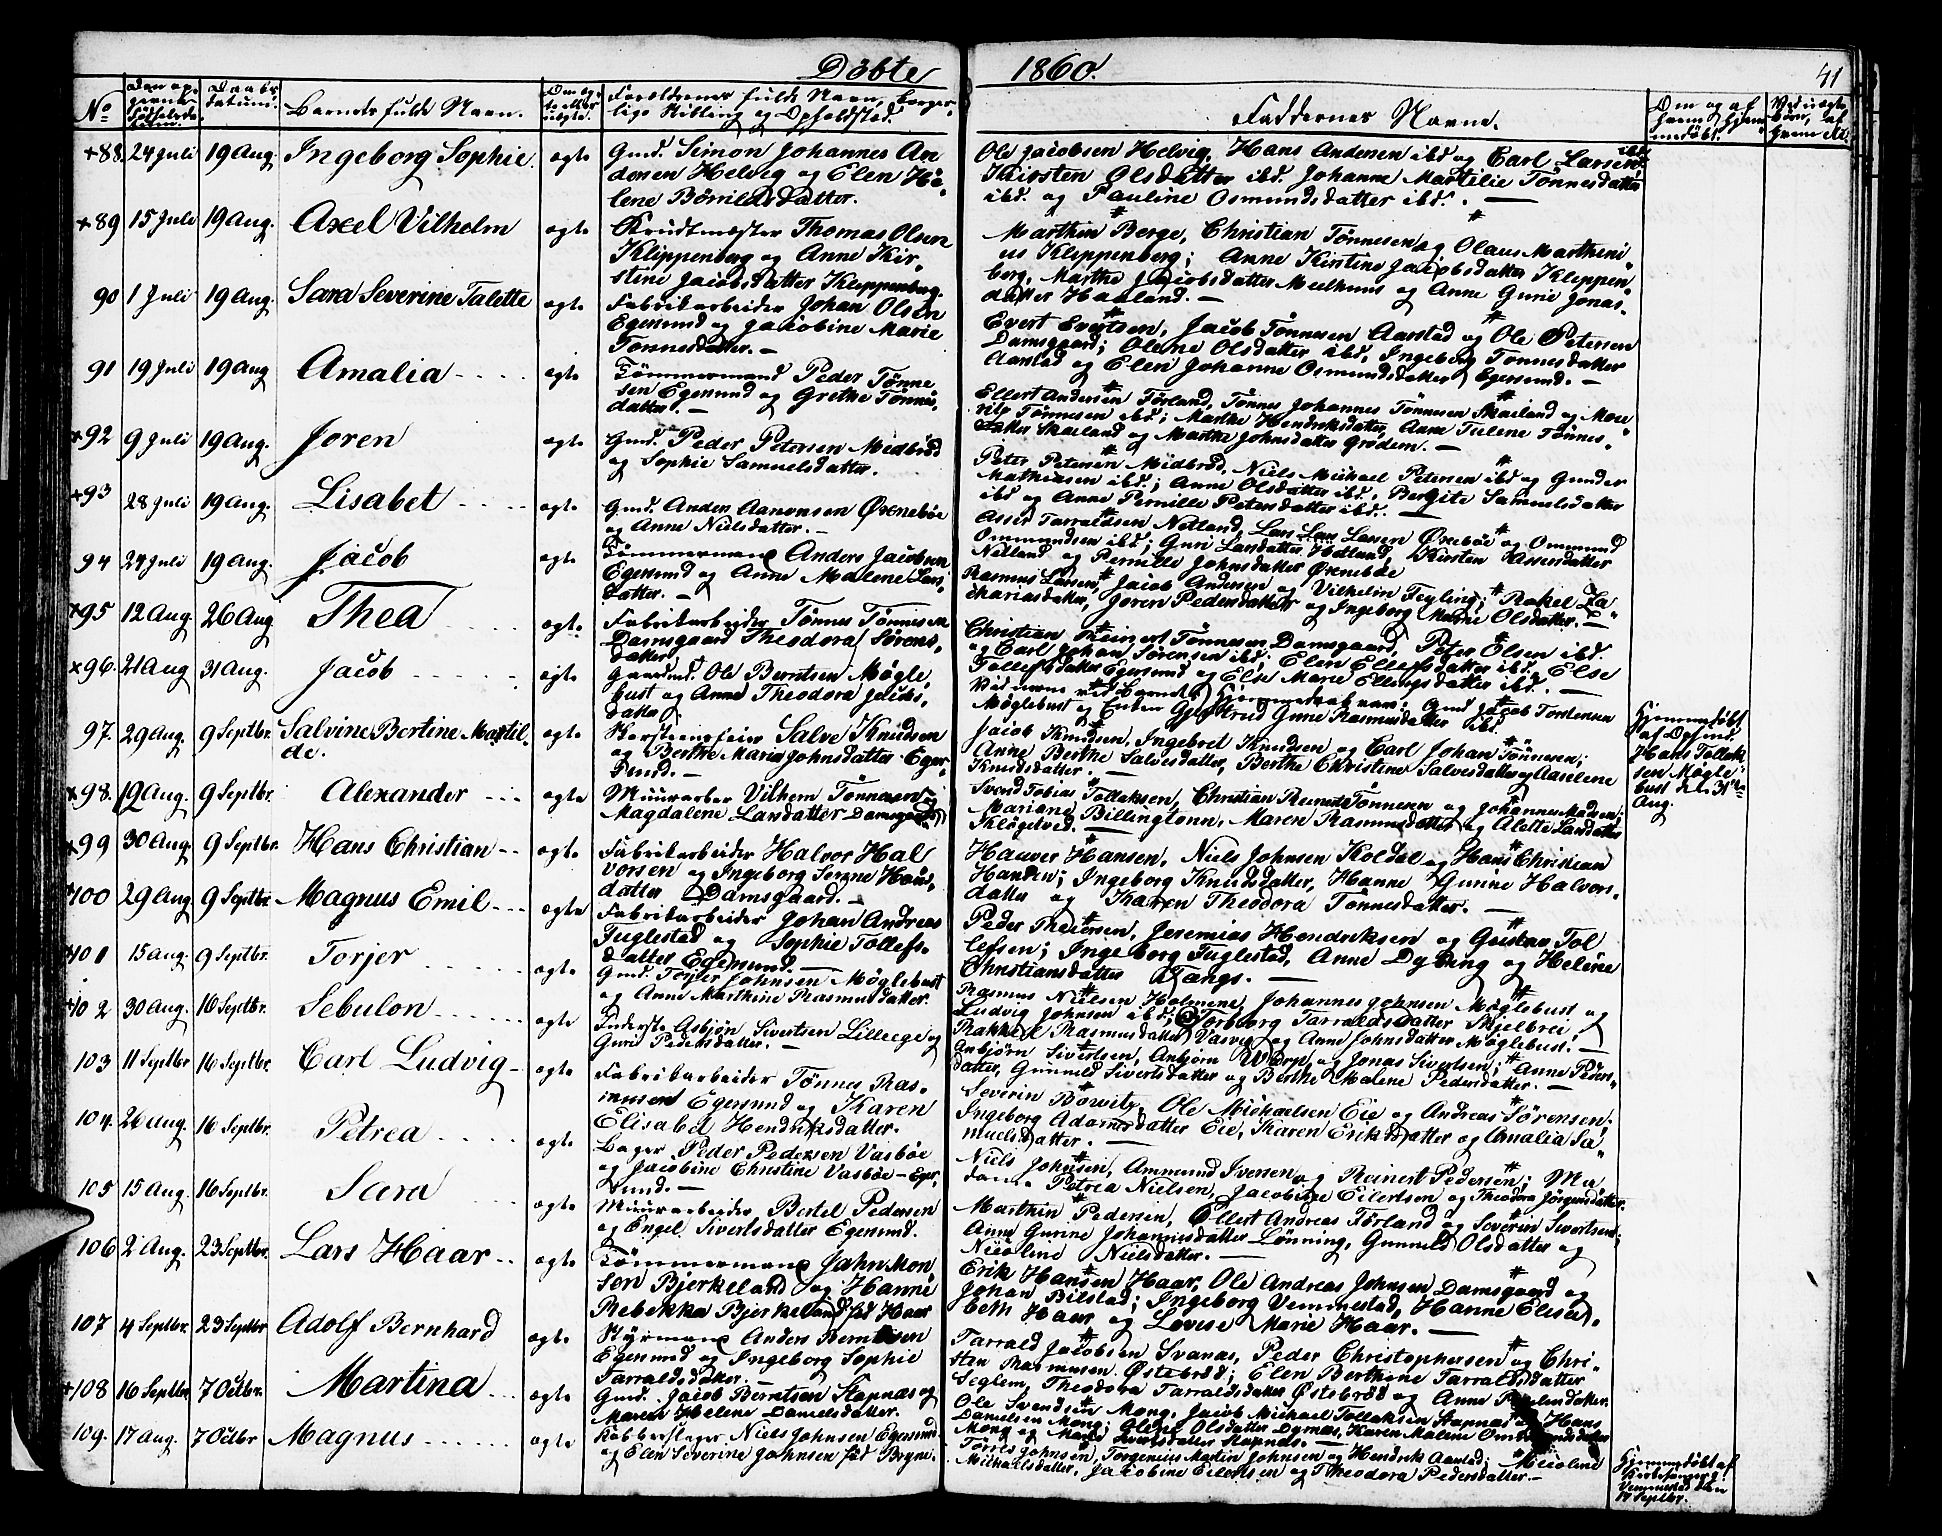 Döbte 1860. 41
No Barnets fulde Navn. Forældrenes fulde Navn, borgerlige Stilling og Opholdssted. Faddernes Navne. Om og af hvem hjemmedøbt.
+88. 24 Juli 19 Aug. Ingeborg Sophie. ægte Gmd. Simon Johannes An
dersen Helvig og Elen He
lene Börrildsdatter.
Ole Jacobsen Helvig, Hans Andersen ibd og Carl Larsen ibd.
Kirsten Olsdatter ibd. Johanne Martilie Tönnesdatter
ibd. og Pauline Osmundsdatter ibd. —
+89 15 Juli 19 Aug. Axel Vilhelm ægte Krudtmester Thomas Olsen
Klippenberg og Anne Kir-
stine Jacobsdatter Klippenberg.
Marthin Berge, Christian Tönnesen og Olaus Martheni-
us Klippenberg; Anne Kirstine Jacobsdatter Klippen-
berg, Marthe Jacobsdatter Meelhuus og Anne Gurie Jonas-
datter Haaland. —
90 1 Juli 19 Aug. Sara Severine Talette ægte Fabrikarbeider Johan Olsen
Egersund og Jacobine Marie
Tonnesdatter. —
Evert Evertsen, Jacob Tönnesen Aarstad og Ole Petersen
Damsgaard; Olene Olsdatter ibd. Ingeborg Tonnesdatter
Aarstad og Elen Johanne Osmundsdatter Egersund. —
91 19 Juli 19 Aug Amalia ægte Tömmermand Peder Tönne
sen Egersund og Grethe Tönnes-
datter. —
Ellert Andersen Förland, Tönnes Johannes Tönnesen Skaeland og
Tönnesen ibd; Marthe Hendriksdatter, Anne Tulene Tönnes-
datter Skaeland og Marthe Johnsdatter Grödem. —
+92 9 Juli 19 Aug. Joren ægte Gmd. Peder Petersen Midbröd
og Sophie Samuelsdatter.
Peter Petersen Midbröd, Niels Michael Petersen ibd og Gunder
Mathiasen ibd; Anne Olsdatter ibd. Bergite Samuelsdatter
ibd og Anne Pernille Petersdatter ibd.
+93 28 Juli 19 Aug. Lisabet ægte Gmd. Anders Aanonsen Öxneböe
og Anne Nielsdatter. —
Asser Tarraldsen Netland, Lars Larsen Öxneböe og Ommund
Ommundsen ibd; Guri Larsdatter Hetland, Kirsten Assersdatter
Netland og Pernille Johnsdatter Öxneböe
94 24 Juli 19 Aug. Jacob ægte Tömmermand Anders Jacobsen
Egersund og Anne Malene Lars-
datter. —
Rasmus Larsen, Jacob Andersen og Vilhelm Feyling; Rakel Za-
chariasdatter, Joren Pedersdatter og Ingeborg Marie Olsdatter. —
+95 12 Aug. 26 Aug Thea ægte. Fabrikarbeider Tönnes Tönnesen
Damsgaard Theodora Sörens-
datter
Christian Reinert Tönnesen Damsgaard, Peter Olsen ibd.
og Carl Johan Sörensen ibd; Elen Ellefsdatter ibd, Else
Tollefsdatter Egersund og Else Marie Ellingsdatter ibd. —
×96. 21 Aug 31 Aug. Jacob ægte Gaardmd. Ole Berntsen Mögle-
bust og Anne Theodora Jacobs-
datter
Gmd Jacob Tordersen
Möglebust og Enken Gjertrud Gurine Rasmusdatter ibd.
97. 29 Aug. 9 Septbr. Salvine Bertine Martil-
de. ægte Skorsteensfeier Salve Knudsen
og Berthe Maria Johnsdatter Eger-
sund. —
Jacob Knudsen, Ingebret Knudsen og Carl Johan Tönnesen;
Anne Berthe Salvesdatter, Berthe Christine Salvesdatter og Aaselene
Knudsdatter. —
Hjemmedöbt
af Gmd.
Hans Tollak-
sen Mögle-
bust d. 31te
Aug.
×98. 12 Aug. 9 Septbr. Alexander ægte Muurarber Vilhem Tönnesen og
Magdalene Larsdatter Damsgaard
Svend Tobias Tollaksen, Christian Reinert Tönnesen og Johannes Madsen;
Mariane Billingtonn, Maren Rasmusdatter og Alette Larsdatter
Klögetved. —
+99 30 Aug. 9 Septbr. Hans Christian ægte Fabrikarbeider Halvor Hal
vorsen og Ingeborg Serine Hans-
datter Damsgaard. —
Hauver Hansen, Niels Johnsen Koldal og Hans Christian
Hansen; Ingeborg Knudsdatter, Hanne Gurine Halvors-
datter og Karen Theodora Tönnesdatter. —
+100 29 Aug 9 Septbr. Magnus Emil ægte Fabrikarbeider Johan Andreas
Fuglestad og Sophie Tollefs-
datter Egersund. —
Peder Thersen, Jeremias Hendriksen og Gustav Tol
lefsen; Ingeborg Fuglestad, Anne Dybing og Helene
Christiansdatter Tangs. —
+101 15 Aug. 9 Septbr. Torjer ægte. Gmd. Torjer Johnsen Möglebust
og Anne Marthine Rasmusdatter.
Rasmus Nielsen Holmene, Johannes Johnsen Möglebust og
Ludvig Johnsen ibd; Torborg Tarraldsdatter Skjelbrei,
Rakkel Rasmusdatter Vasvig og Anne Johnsdatter Möglebust. —
+102 30 Aug. 16 Septbr. Sebulon ægte Inderste Asbjön Sivertsen Lilleege og
Guri Pedersdatter. —
Asbjörn Sivertsen, Anbjörn og Jonas Sivertsen; Anne Peders-
datter, Gunnild Sivertsdatter og Berthe Malene Pedersdatter. —
103 11 Septbr 16 Septbr. Carl Ludvig ægte Fabrikarbeider Tönnes Ras-
mussen Egersund og Karen
Elisabet Hendriksdatter.
Severin Börvitz, Ole Michaelsen Eie og Andreas Sörensen;
Ingeborg Adamsdatter Eie, Karen Eriksdatter og Amalia Sa-
muelsdatter. —
104. 26 Aug. 16 Septbr. Petrea ægte Bager Peder Pedersen Vasböe
og Jacobine Christine Vasböe – Eger-
sund. —
Niels Johnsen, Ammund Iversen og Reinert Pedersen; Ma
dam. Petrea Nielsen, Jacobine Eilertsen og Theodora Jörgensdatter.
105 15 Aug. 16 Septbr. Sara ægte Muurarbeider Bertel Pedersen
og Engel Sivertsdatter Egersund.
Marthin Pedersen, Ellert Andreas Förland og Severin Sivertsen;
Anne Gurine Johannesdatter Lönning, Gunnild Olsdatter og
Nicoline Nielsdatter. —
106 2 Aug. 23 Septbr. Lars Haar ægte Tömmermand John Mon
sen Bjerkeland og Hanne
Rebekka Bjerkeland föd Haar
Erik Hansen Haar, Ole Andreas Johnsen Damsgaard og
Johan Bilstad; Ingeborg Vemmestad, Hanne Elisa-
beth Haar og Lovise Marie Haar. —
107 4 Septbr. 23 Septbr Adolf Bernhard ægte Styrmand Anders Berntsen
Egersund og Ingeborg Sophie
Tarraldsdatter. —
Tarrald Jacobsen Svanæs, Peder Christophersen og Chri-
sten Rasmussen Östebröd; Elen Berthine Tarraldsdatter
Seglem, Theodora Tarraldsdatter Östebröd og Anne Poulsdatter.
+108 16 Septbr. 7 Octbr. Martina ægte Gmd. Jacob Berntsen Stapnæs og
Maren Helene Danielsdatter.
Ole Svendsen Mong, Jacob Michael Tollaksen Stapnæs og Hans
Danielsen Mong; Olene Olsdatter Dyrnæs, Karen Malene Ommundsdatter
Mong og Marie Stapnæs. —
109. 17 Aug. 7 Octbr Magnus ægte Kobberslager Niels Johnsen Egersund
og Elen Severine Johnsen föd Bryne.
Torres Johnsen, Torgenius Martin Johnsen og Hendrik Aarstad; Nicoline
Michaelsdatter, Jacobine Eilertsen og Theodora Pedersdatter. —
Hjemmedöbt af
Kirkesanger
Vemmestad den
17 Septbr.